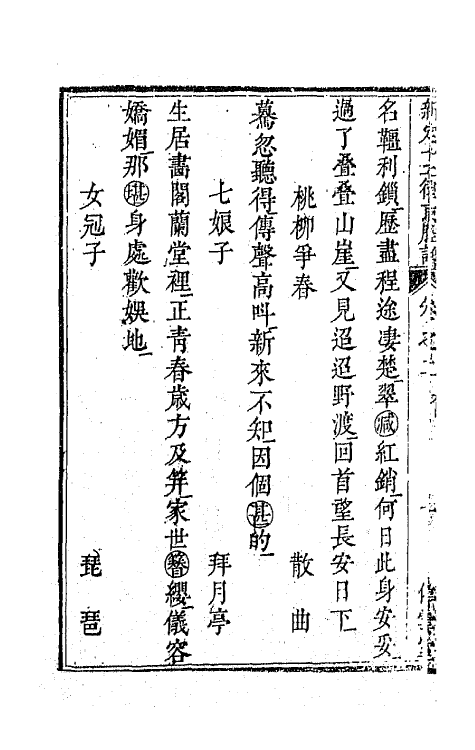 名韁利鎖歷盡程途凄楚翠減紅銷何日此身安妥
過了叠叠山崖又見迢迢野渡回首望長安日下
桃柳爭春 散曲
驀忽聽得傳聲高叫新來不知因個甚的
七娘子 拜月亭
生居畵閣蘭堂裡正青春歲方及笄家世簪纓儀容
嬌媚那堪身處歡娛地
女冠子 琵琶